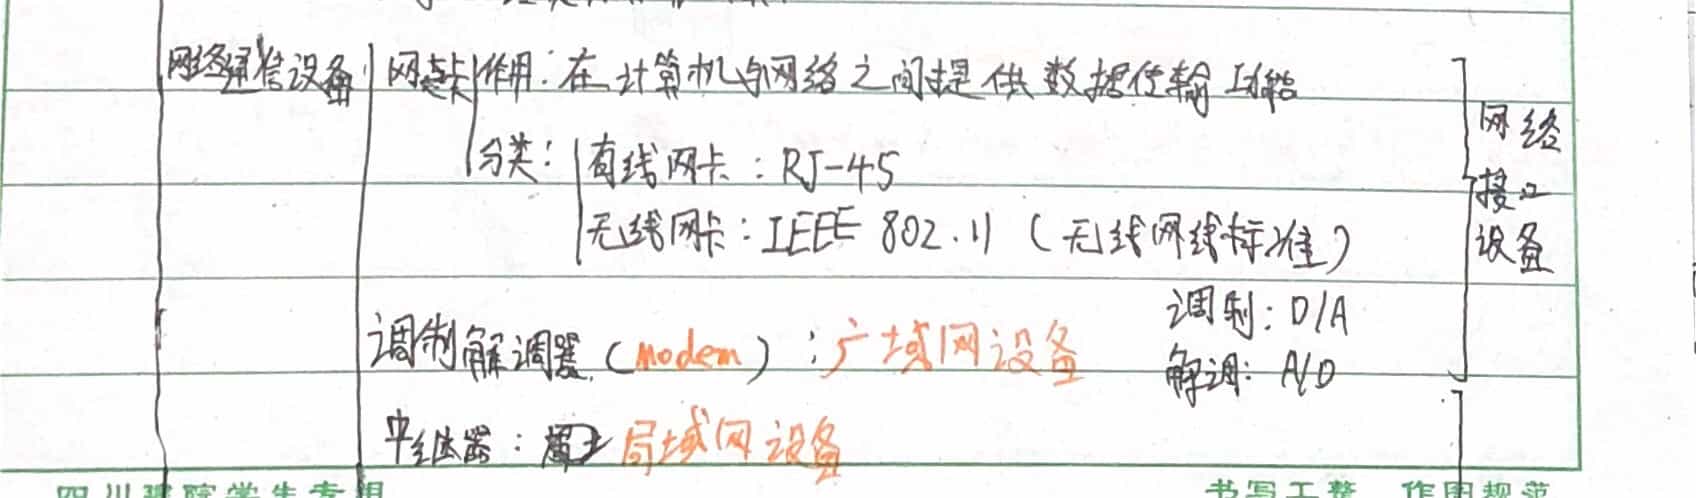 网络通信设备 网卡 作用：在计算机与网络之间提供数据传输功能
分类：有线网卡：RJ-45
无线网卡：IEEE 802.11（无线网线标准）
网络
接口
设备
调制解调器（modem）：广域网设备
调制：D/A
解调：A/D
中继器：局域网设备
四川建院学生专用 书写工整 作图规范